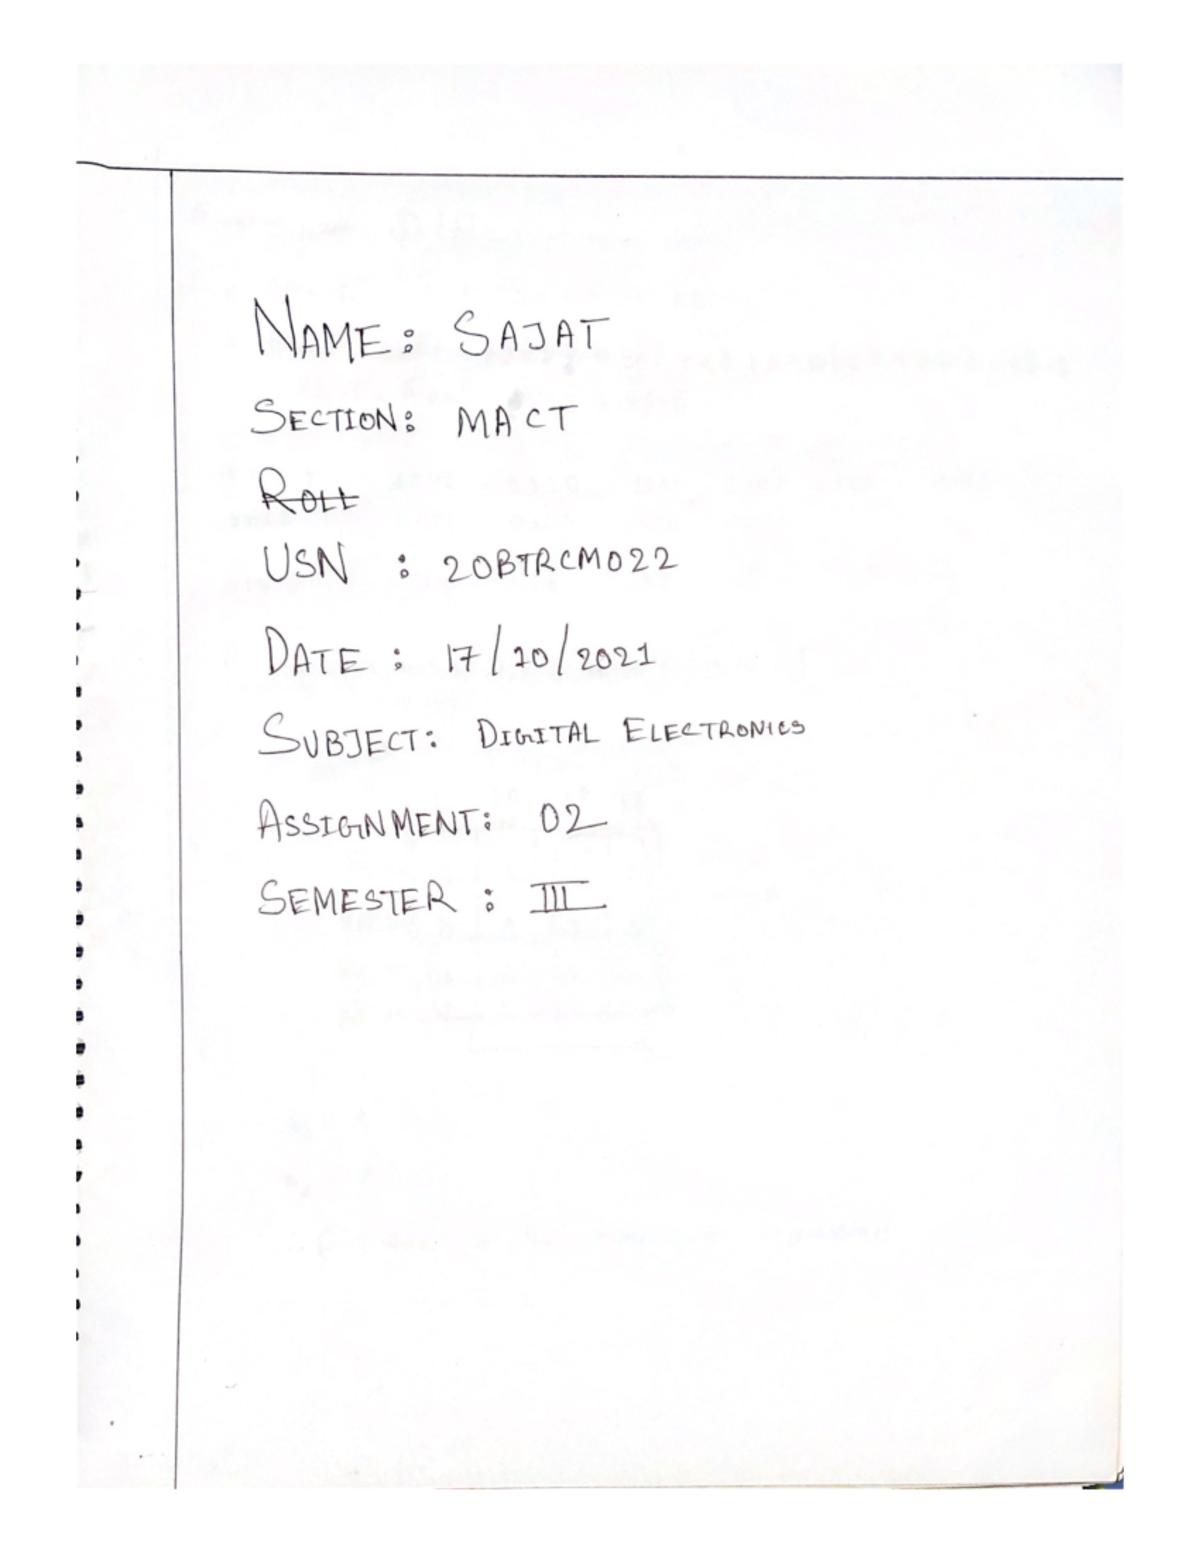 NAME: SAJAT
SECTION: MACT
ROLL
USN : 20BTRCM022
DATE : 17/10/2021
SUBJECT: DIGITAL ELECTRONICS
ASSIGNMENT: 02
SEMESTER : III